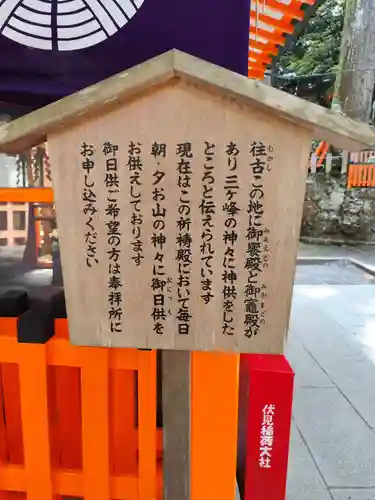 往古この地に御饗殿と御竈殿が
あり三ヶ峰の神々に神供をした
ところと伝えられています
現在はこの祈祷殿において毎日
朝・夕お山の神々に御日供を
お供えしております
御日供ご希望の方は奉拝所に
お申し込みください
むかし
みあえどの
みかまどの
おにっく
伏見稲荷大社